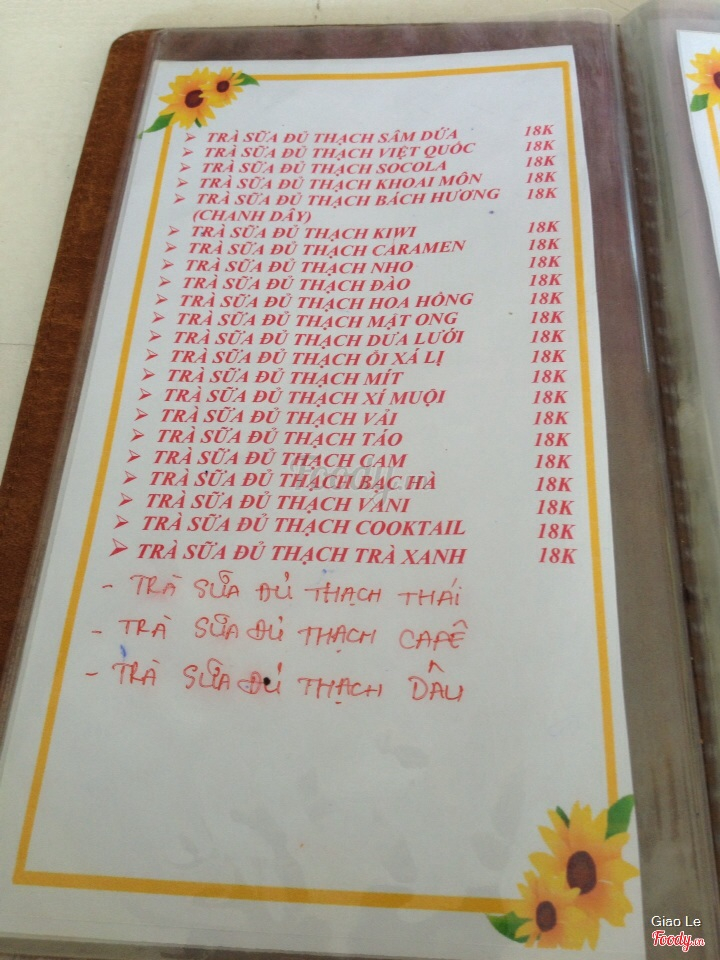 ➢ TRÀ SỮA ĐỦ THẠCH SÂM DỨA 18K
➢ TRÀ SỮA ĐỦ THẠCH VIỆT QUỐC 18K
➢ TRÀ SỮA ĐỦ THẠCH SOCOLA 18K
➢ TRÀ SỮA ĐỦ THẠCH KHOAI MÔN 18K
➢ TRÀ SỮA ĐỦ THẠCH BÁCH HƯƠNG 18K
(CHANH DÂY)
➢ TRÀ SỮA ĐỦ THẠCH KIWI 18K
➢ TRÀ SỮA ĐỦ THẠCH CARAMEN 18K
➢ TRÀ SỮA ĐỦ THẠCH NHO 18K
➢ TRÀ SỮA ĐỦ THẠCH ĐÀO 18K
➢ TRÀ SỮA ĐỦ THẠCH HOA HỒNG 18K
➢ TRÀ SỮA ĐỦ THẠCH MẬT ONG 18K
➢ TRÀ SỮA ĐỦ THẠCH DƯA LƯỚI 18K
➢ TRÀ SỮA ĐỦ THẠCH ỔI XÁ LỊ 18K
➢ TRÀ SỮA ĐỦ THẠCH MÍT 18K
➢ TRÀ SỮA ĐỦ THẠCH XÍ MUỘI 18K
➢ TRÀ SỮA ĐỦ THẠCH VẢI 18K
➢ TRÀ SỮA ĐỦ THẠCH TÁO 18K
➢ TRÀ SỮA ĐỦ THẠCH CAM 18K
➢ TRÀ SỮA ĐỦ THẠCH BẠC HÀ 18K
➢ TRÀ SỮA ĐỦ THẠCH VANI 18K
➢ TRÀ SỮA ĐỦ THẠCH COOKTAIL 18K
➢ TRÀ SỮA ĐỦ THẠCH TRÀ XANH 18K
- TRÀ SỮA ĐỦ THẠCH THÁI
- TRÀ SỮA ĐỦ THẠCH CAFÊ
- TRÀ SỮA ĐỦ THẠCH DÂU
Foody.vn
Giao Le
Foody.vn